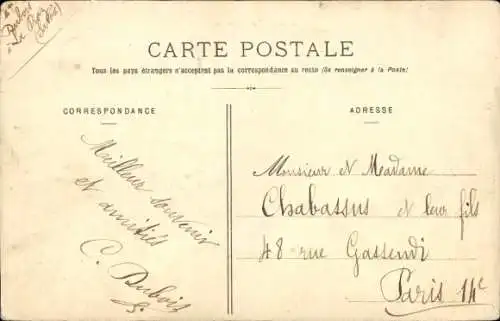 Dubois
Le
CARTE POSTALE
Tous les pays étrangers n'acceptent pas la correspondance au recto (Se renseigner à la Poste)
CORRESPONDANCE
Meilleur souvenir
et amitiés
C. Dubois
ADRESSE
Monsieur et Madame
Chabassus et leur fils
48 rue Gassendi
Paris 14e